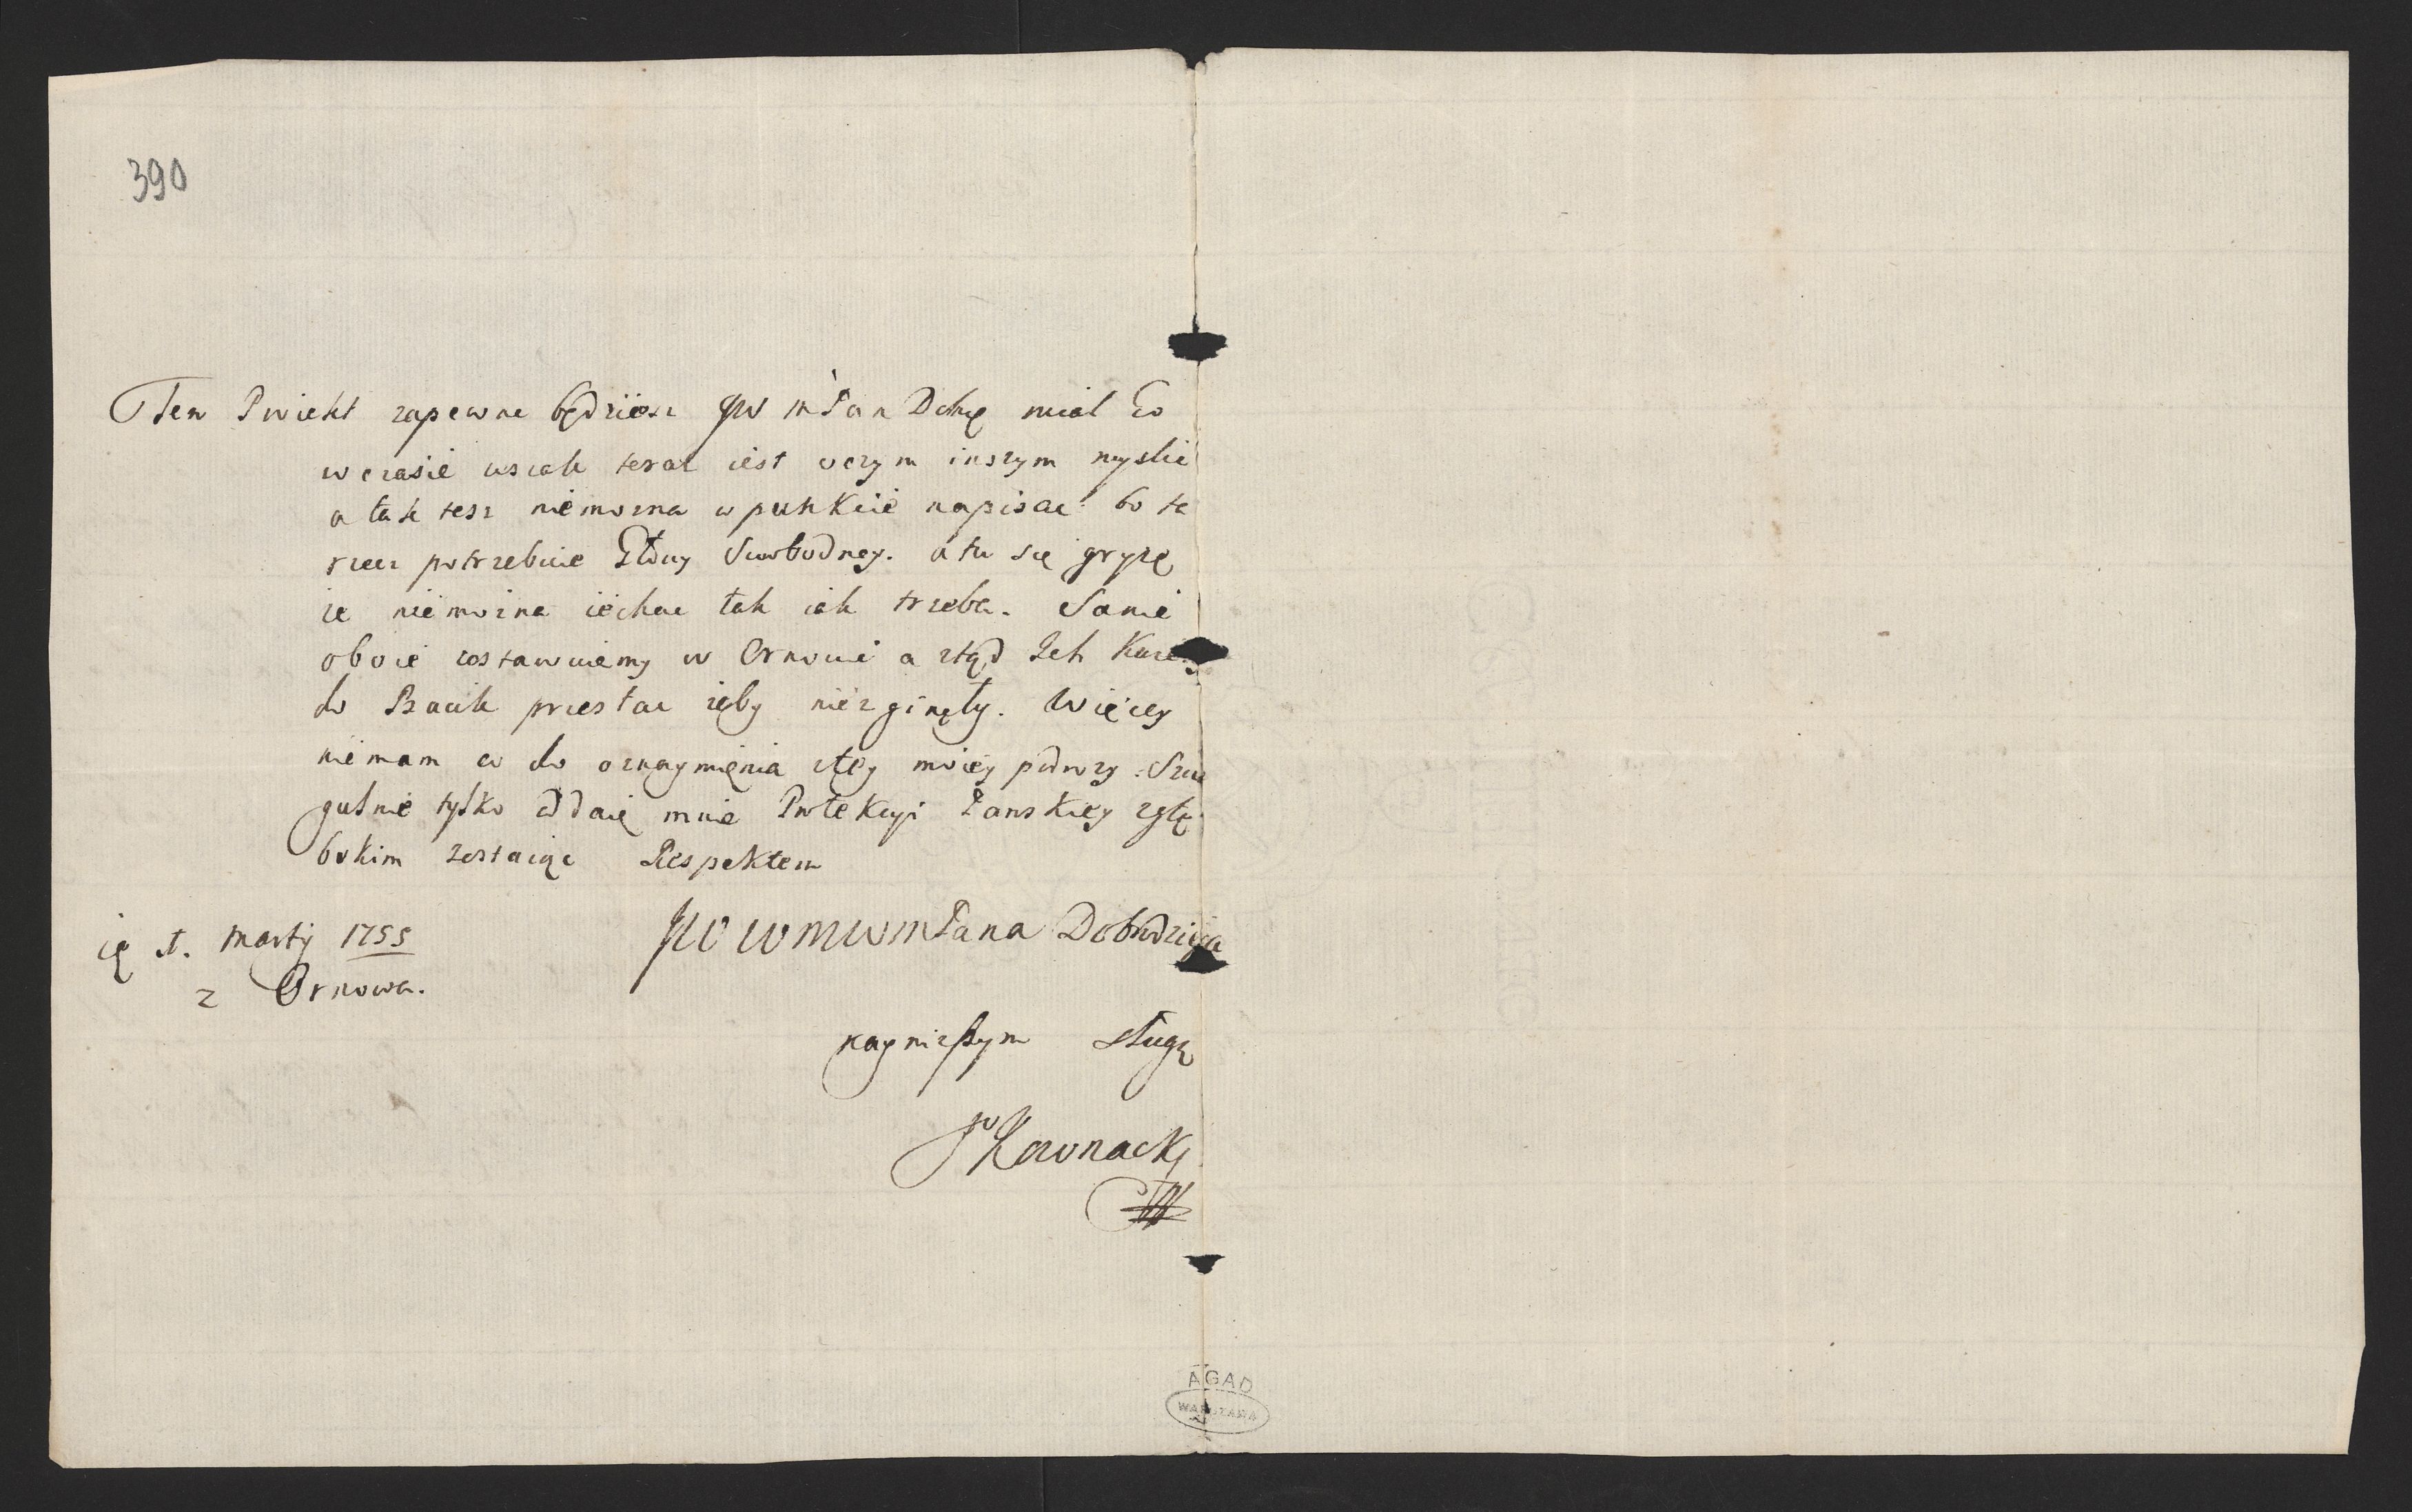 390
Ten Proiekt zapewne będziesz JW mPan Dobrę miał Co
w czasie wszak teraz iest o czym inszym myslić
a tak tesz niemozna w punkcie napisac bo ta
rzecz potrzebuie Głowy Swobodney. a tu się gryzę
ze niemozna iechac tak iak trzeba. Sanie
oboie zostawuiemy w Ornowie a ztąd Ich Karze
do Bacik przesłac zęby niezginęły. Więcey
niemam co do oznaymięnia ztey moiey podrozy. Szcze
gulnie tylko oddaię mnie Protekcyi Panskiey zglę
bokim zostaiąc Respektem
JW WMWMPana Dobrodzieja
1. Martij 1755
z Ornowa.
nayniższym sługą
Kownacki
AGAD
WARSZAWA